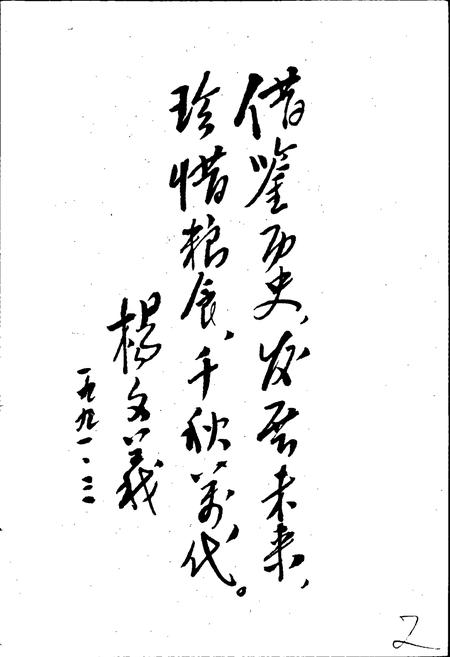 借鉴历史，发展未来，
珍惜粮食，千秋萬代。
楊文义
一九九一·三·二
2